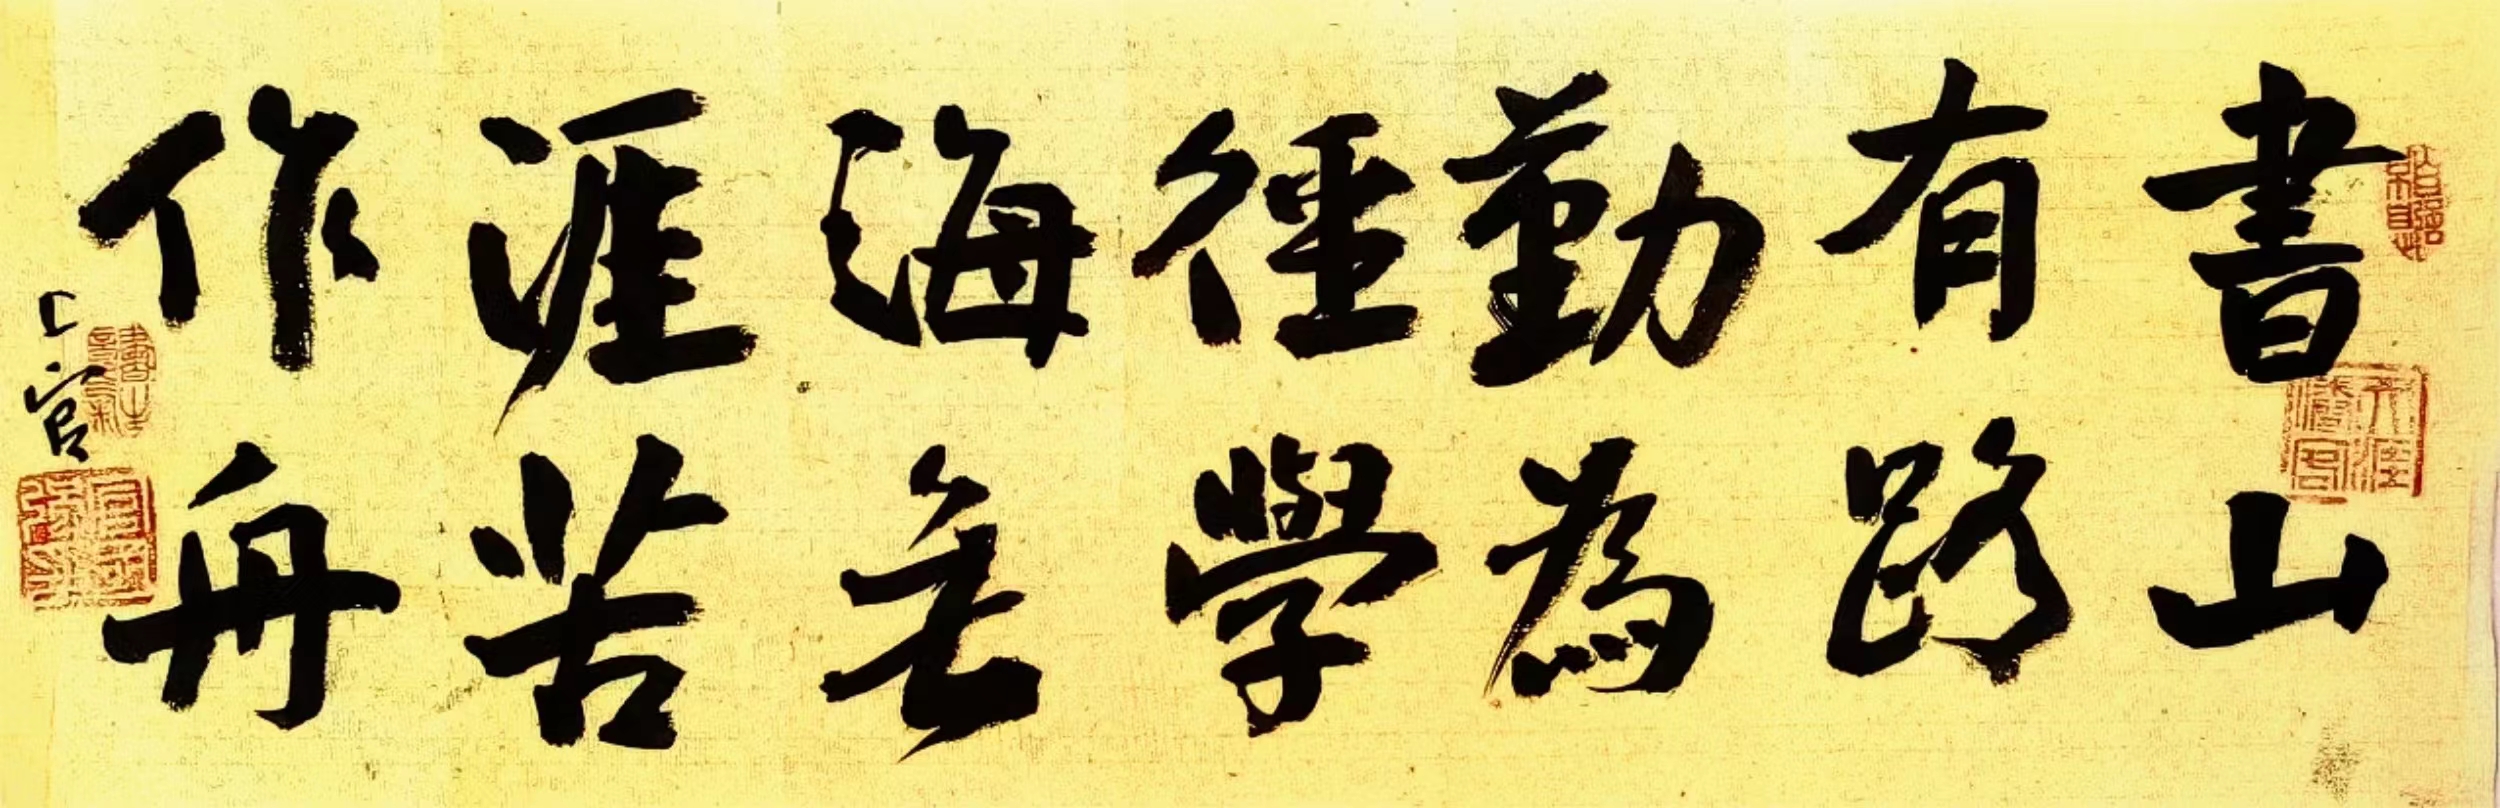 書山
有路
勤為
徑學
海無
涯苦
作舟
上官